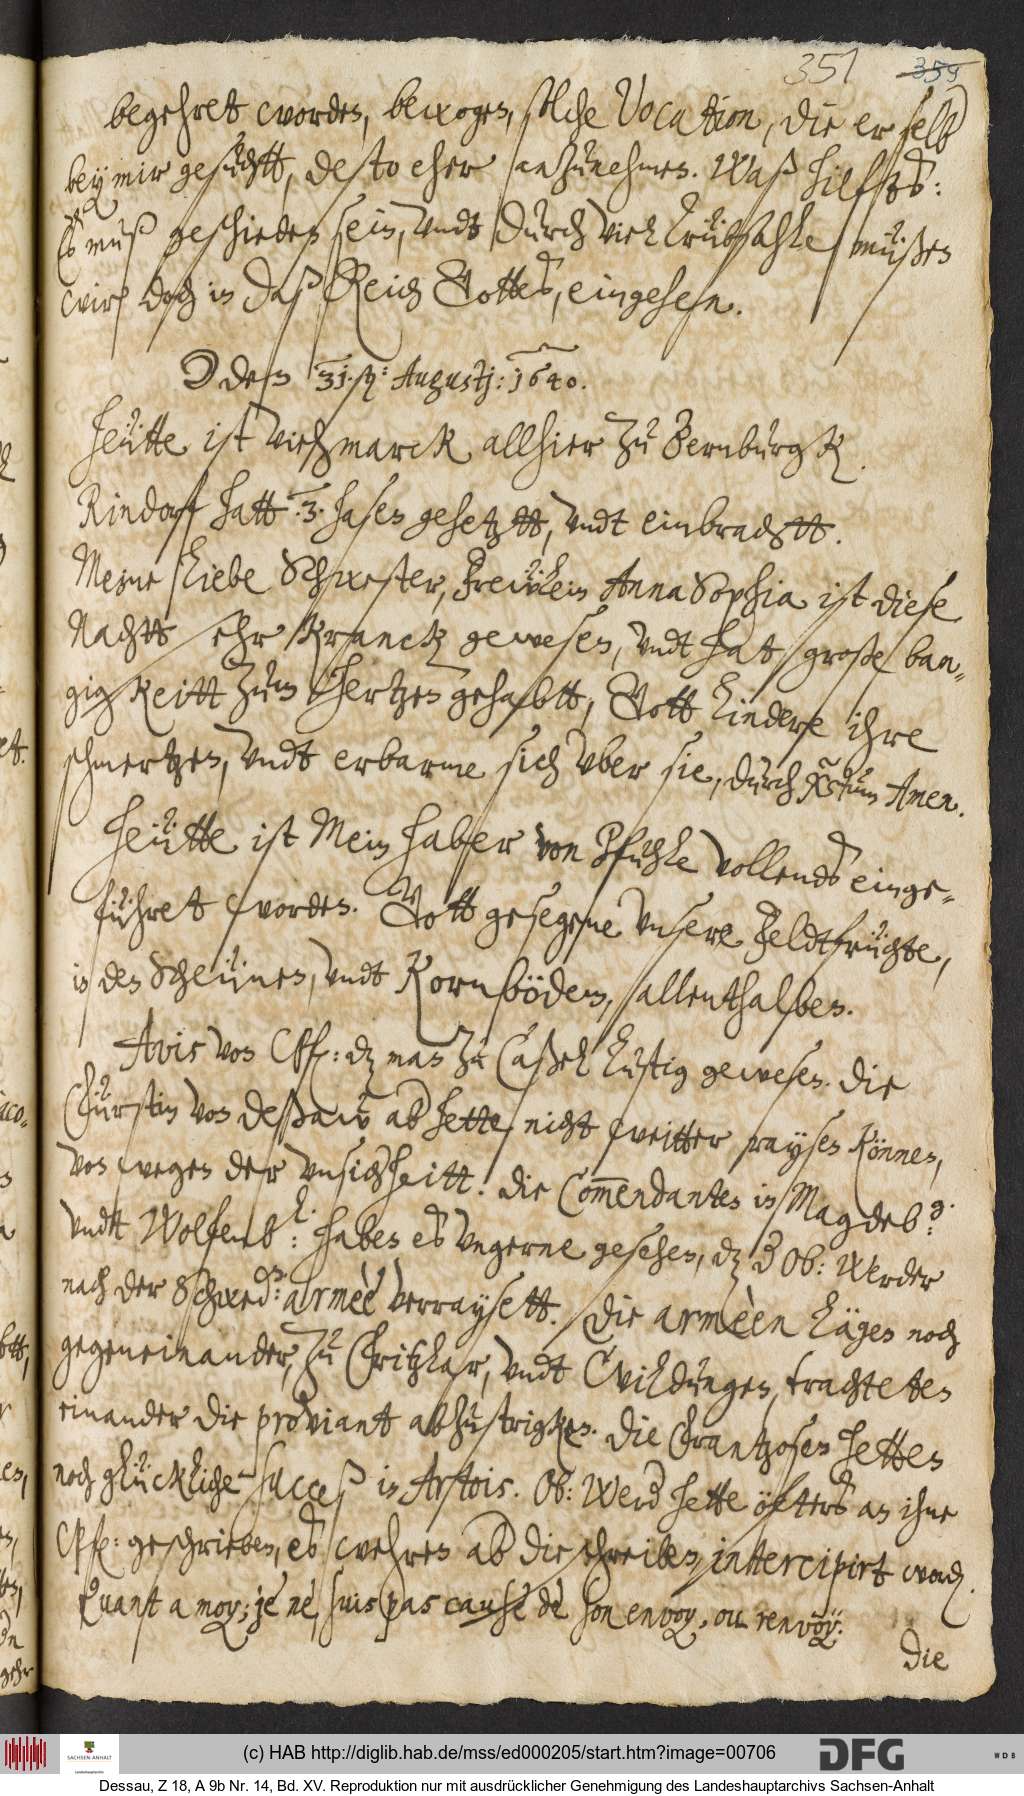 351 359
begehret worden, bewogen, solche Vocation, die er selb
bey mir gesuchtt, desto eher anzunehmen. Waß hilfts:
Es muß geschieden sein, undt durch viel trübsahle müßen
wir doch in daß Reich Gottes, eingehen.
☽ den 31. sten: Augustj: 1640.
Heütte ist Viehmarck allhier zu Bernburgk.
Rindorf hatt .3. hasen gehetztt, undt einbrachtt.
Meine liebe Schwester, Frewlein Anna Sophia ist diese
Nachtt sehr kranck gewesen, undt hat, große ban-
gigkeitt zum hertzen gehabtt, Gott lindere ihre
schmertzen, undt erbarme sich uber sie, durch Xstum Amen.
Heütte ist Mein haber von Pfuhle vollends einge-
führet worden. Gott gesegene unsere Feldtfrüchte,
in den Scheünen, undt Kornböden, allenthalben.
Avis von CPf: dz man zu Caßel lustig gewesen. die
Fürstin von deßaw ab hette nicht weitter raysen können,
von wegen der unsichheitt. die Commendanten in Magdeb:
undt Wolfenb: haben es ungerne gesehen, dz d Ob: Werder
nach der Schwed: armèè verraysett. Die armèen lägen noch
gegeneinander, zu Fritzlar, undt Wildungen, trachteten
einander die proviant abzustricken. Die Frantzosen hetten
noch glückliche succeß in Artois. Ob: Werd hette öfters an ihne
CPf: geschrieben, es wehren ab die schreiben intercipirt word.
Quant a moy; je ne suis pas causè de son envoy, ou renvoy:
Die
(c) HAB http://diglib.hab.de/mss/ed000205/start.htm?image=00706
SACHSEN-ANHALT
DFG
WDB
Dessau, Z 18, A 9b Nr. 14, Bd. XV. Reproduktion nur mit ausdrücklicher Genehmigung des Landeshauptarchivs Sachsen-Anhalt